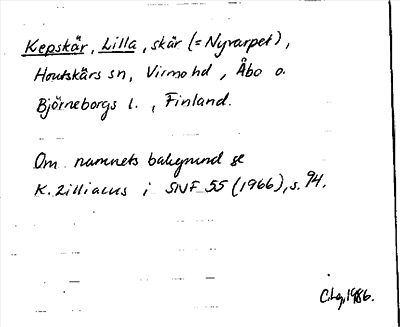 Kepskär, Lilla, skär (= Nyvarpet),
Houtskärs sn, Virmo hd, Åbo o.
Björneborgs l., Finland.
Om namnets bakgrund se
K. Zilliacus i SNF 55 (1966), s. 94.
C. Lg, 1986.